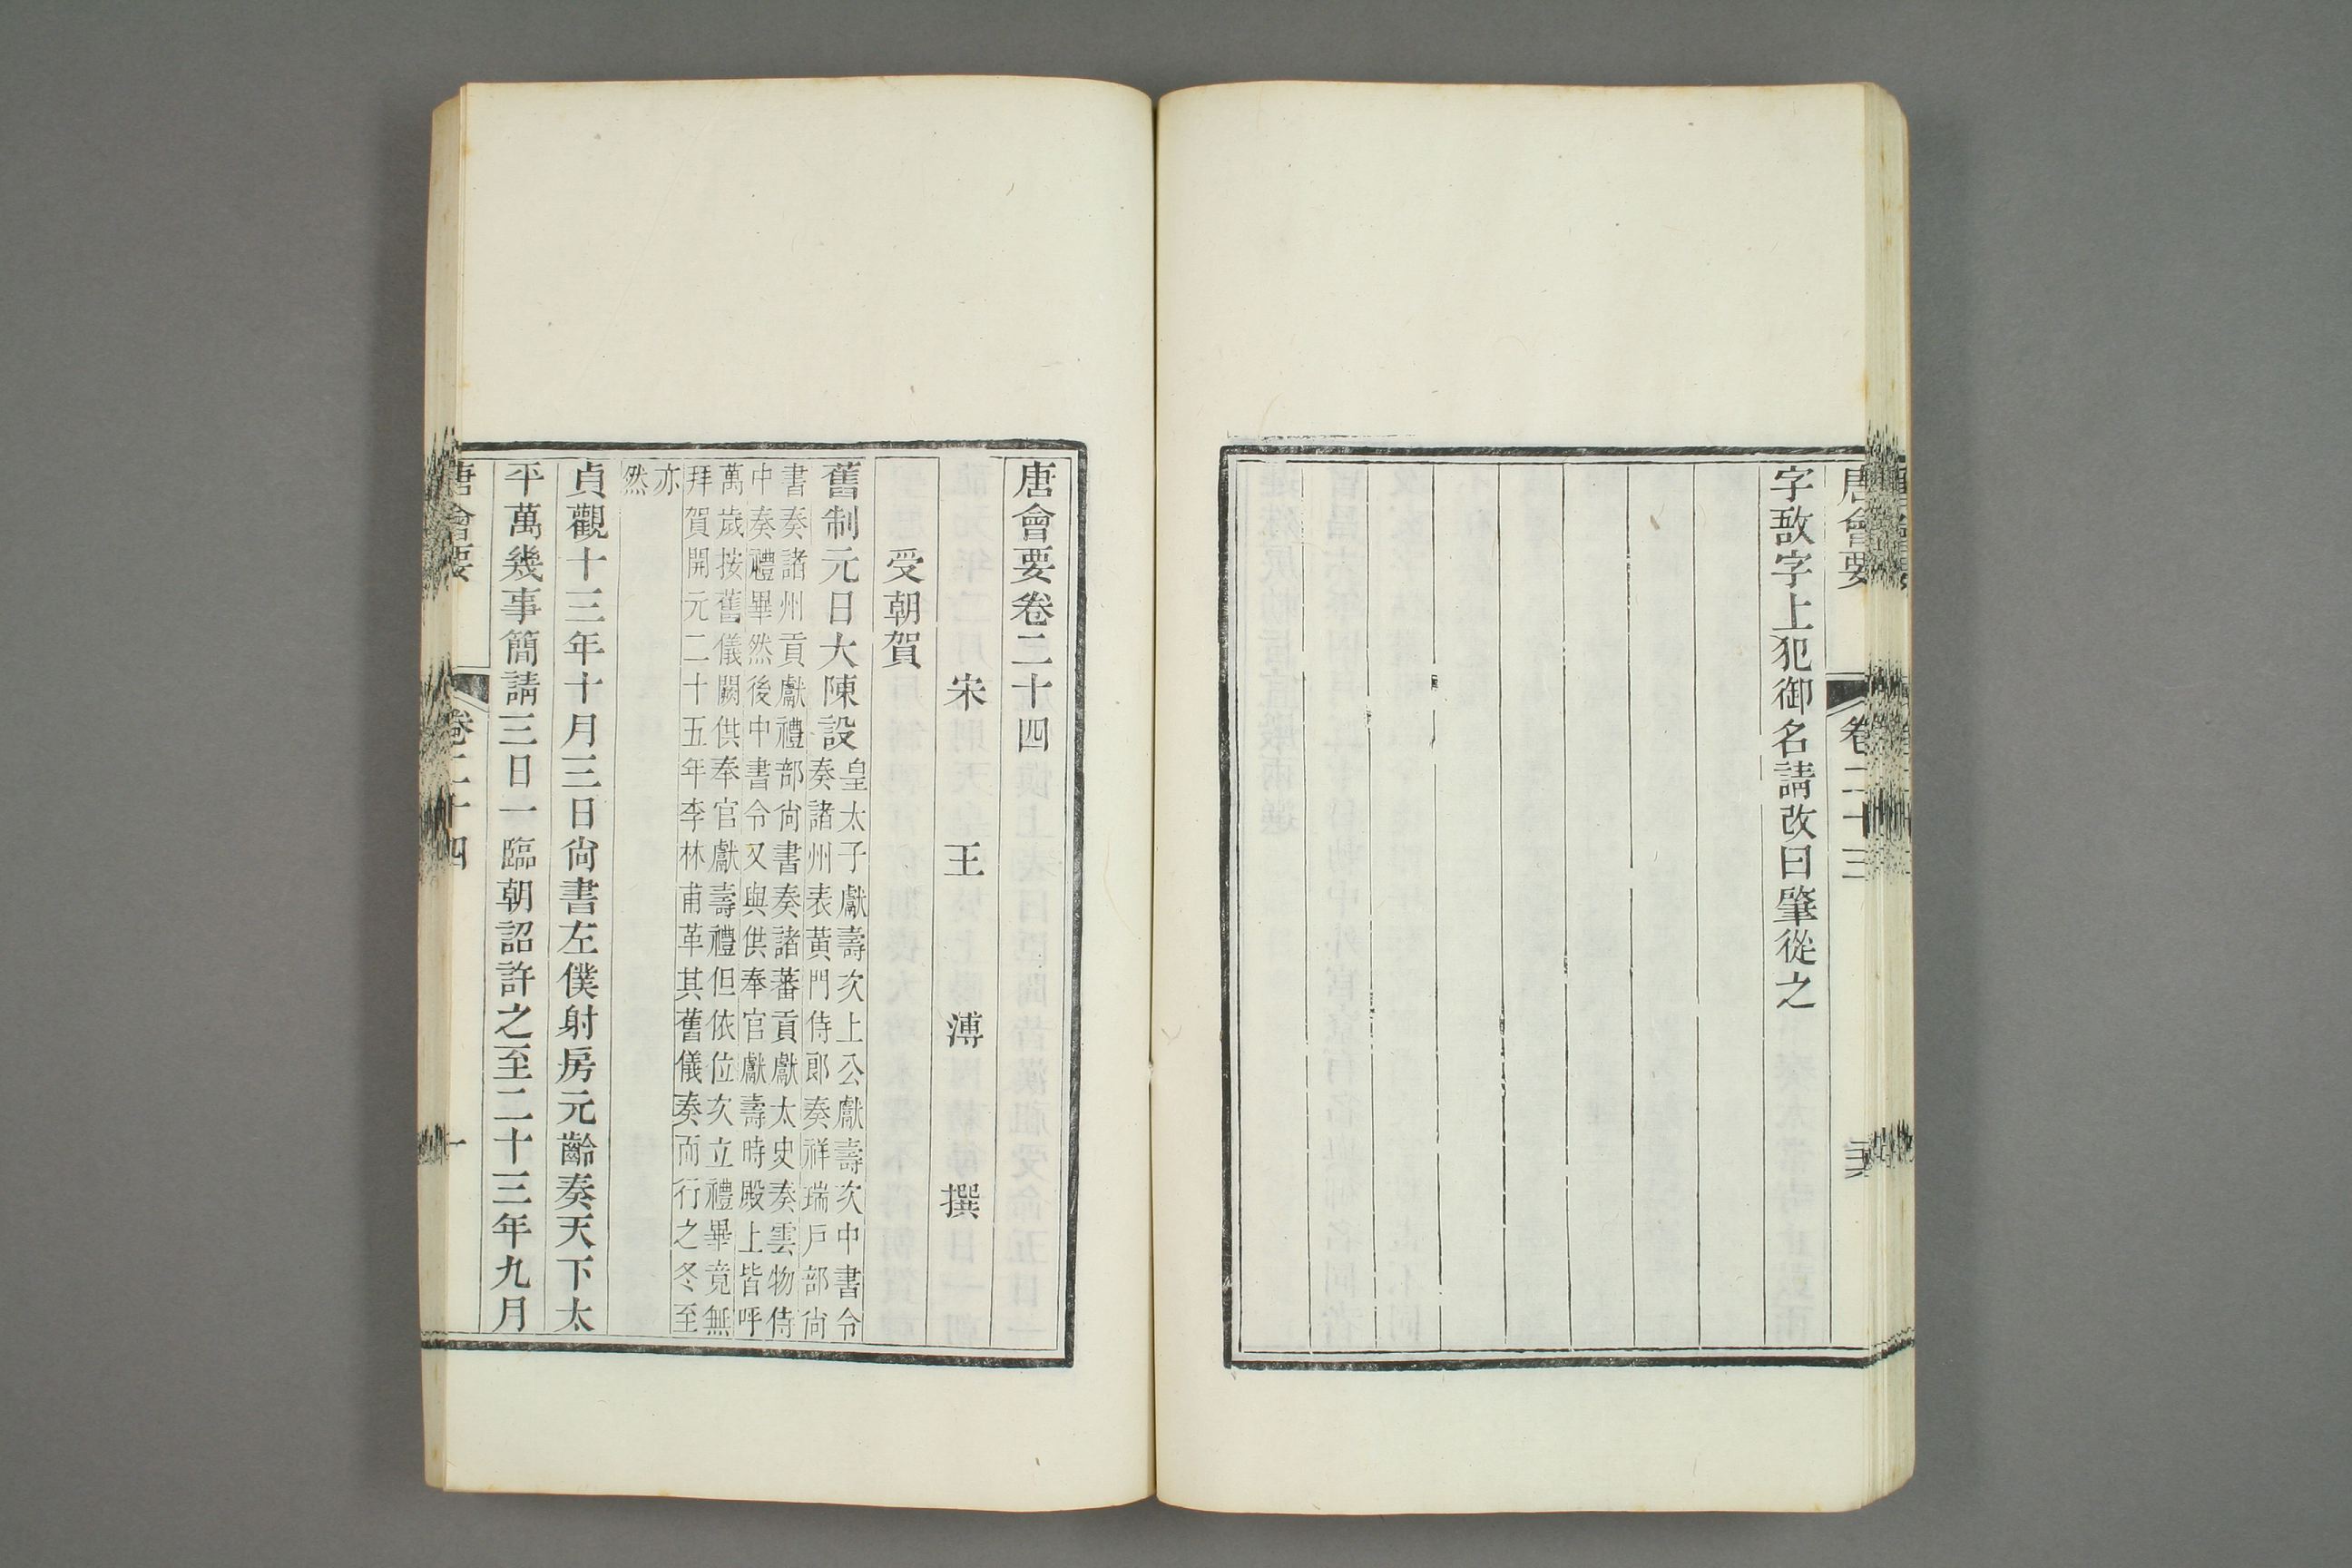 唐會要
卷二十三
字敔字上犯御名請改曰肇從之
唐會要卷二十四
宋 王 溥 撰
受朝賀
舊制元日大陳設
皇太子獻壽次上公獻壽次中書令
奏諸州表黃門侍郎奏祥瑞戶部尙
書奏諸州貢獻禮部尙書奏諸蕃貢獻太史奏雲物侍
中奏禮畢然後中書令又與供奉官獻壽時殿上皆呼
萬歲按舊儀闕供奉官獻壽禮但依位次立禮畢竟無
拜賀開元二十五年李林甫革其舊儀奏而行之冬至
亦
然
貞觀十三年十月三日尙書左僕射房元齡奏天下太
平萬幾事簡請三日一臨朝詔許之至二十三年九月
唐會要
卷二十四
一